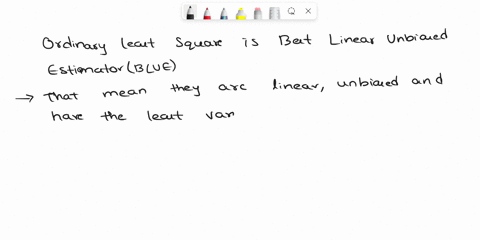 Ordinary least Square is Best Linear Unbiased
Estimator (BLUE)
→ That mean they are linear, unbiased and
have the least var